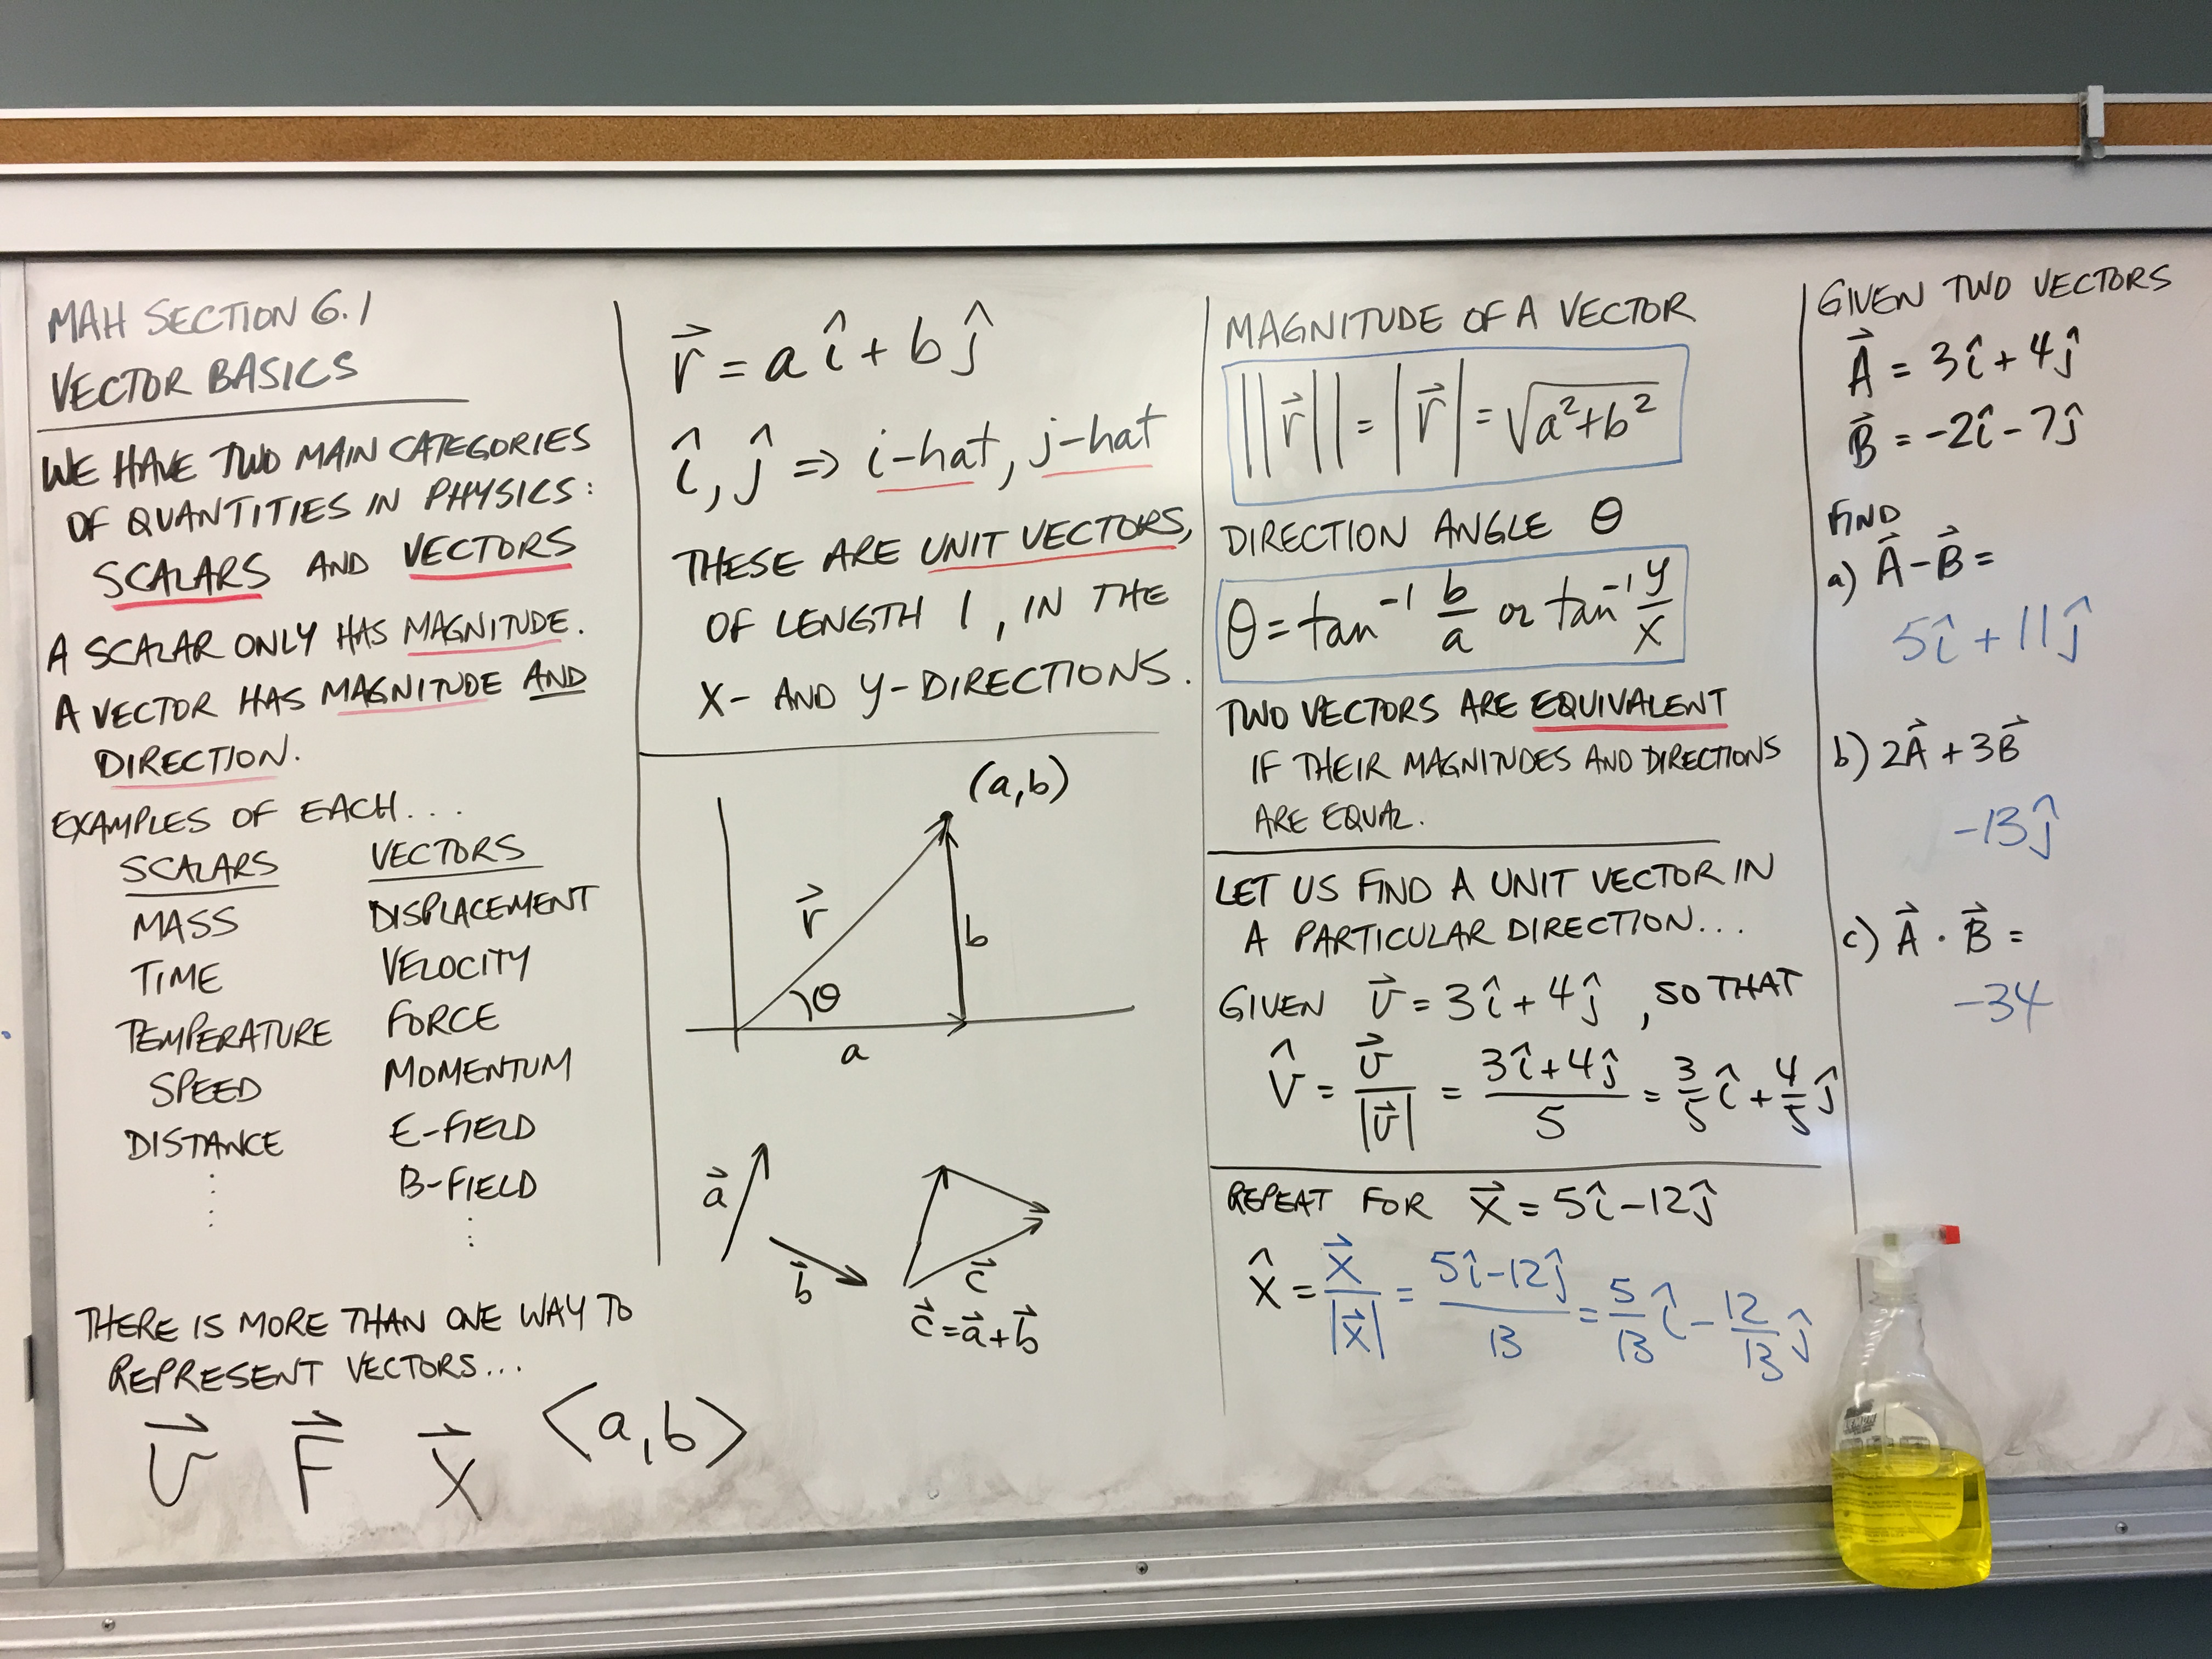 MAH SECTION 6.1
VECTOR BASICS
WE HAVE TWO MAIN CATEGORIES
OF QUANTITIES IN PHYSICS:
SCALARS AND VECTORS
A SCALAR ONLY HAS MAGNITUDE.
A VECTOR HAS MAGNITUDE AND
DIRECTION.
EXAMPLES OF EACH...
SCALARS VECTORS
MASS DISPLACEMENT
TIME VELOCITY
TEMPERATURE FORCE
SPEED MOMENTUM
DISTANCE E-FIELD
B-FIELD
THERE IS MORE THAN ONE WAY TO
REPRESENT VECTORS...
v⃗ F⃗ x⃗ ⟨a,b⟩
r⃗ = a î + b ĵ
î, ĵ ⇒ i-hat, j-hat
THESE ARE UNIT VECTORS,
OF LENGTH 1, IN THE
X- AND Y-DIRECTIONS.
(a,b)
r⃗
b
θ
a
a⃗
b⃗
c⃗
c⃗ = a⃗ + b⃗
MAGNITUDE OF A VECTOR
||r⃗|| = |r⃗| = √(a²+b²)
DIRECTION ANGLE θ
θ = tan⁻¹ b/a or tan⁻¹ y/x
TWO VECTORS ARE EQUIVALENT
IF THEIR MAGNITUDES AND DIRECTIONS
ARE EQUAL.
LET US FIND A UNIT VECTOR IN
A PARTICULAR DIRECTION...
GIVEN v⃗ = 3î + 4ĵ, SO THAT
v̂ = v⃗/|v⃗| = (3î+4ĵ)/5 = 3/5 î + 4/5 ĵ
REPEAT FOR x⃗ = 5î - 12ĵ
x̂ = x⃗/|x⃗| = (5î-12ĵ)/13 = 5/13 î - 12/13 ĵ
GIVEN TWO VECTORS
A⃗ = 3î + 4ĵ
B⃗ = -2î - 7ĵ
FIND
a) A⃗ - B⃗ =
5î + 11ĵ
b) 2A⃗ + 3B⃗
-13ĵ
c) A⃗ · B⃗ =
-34